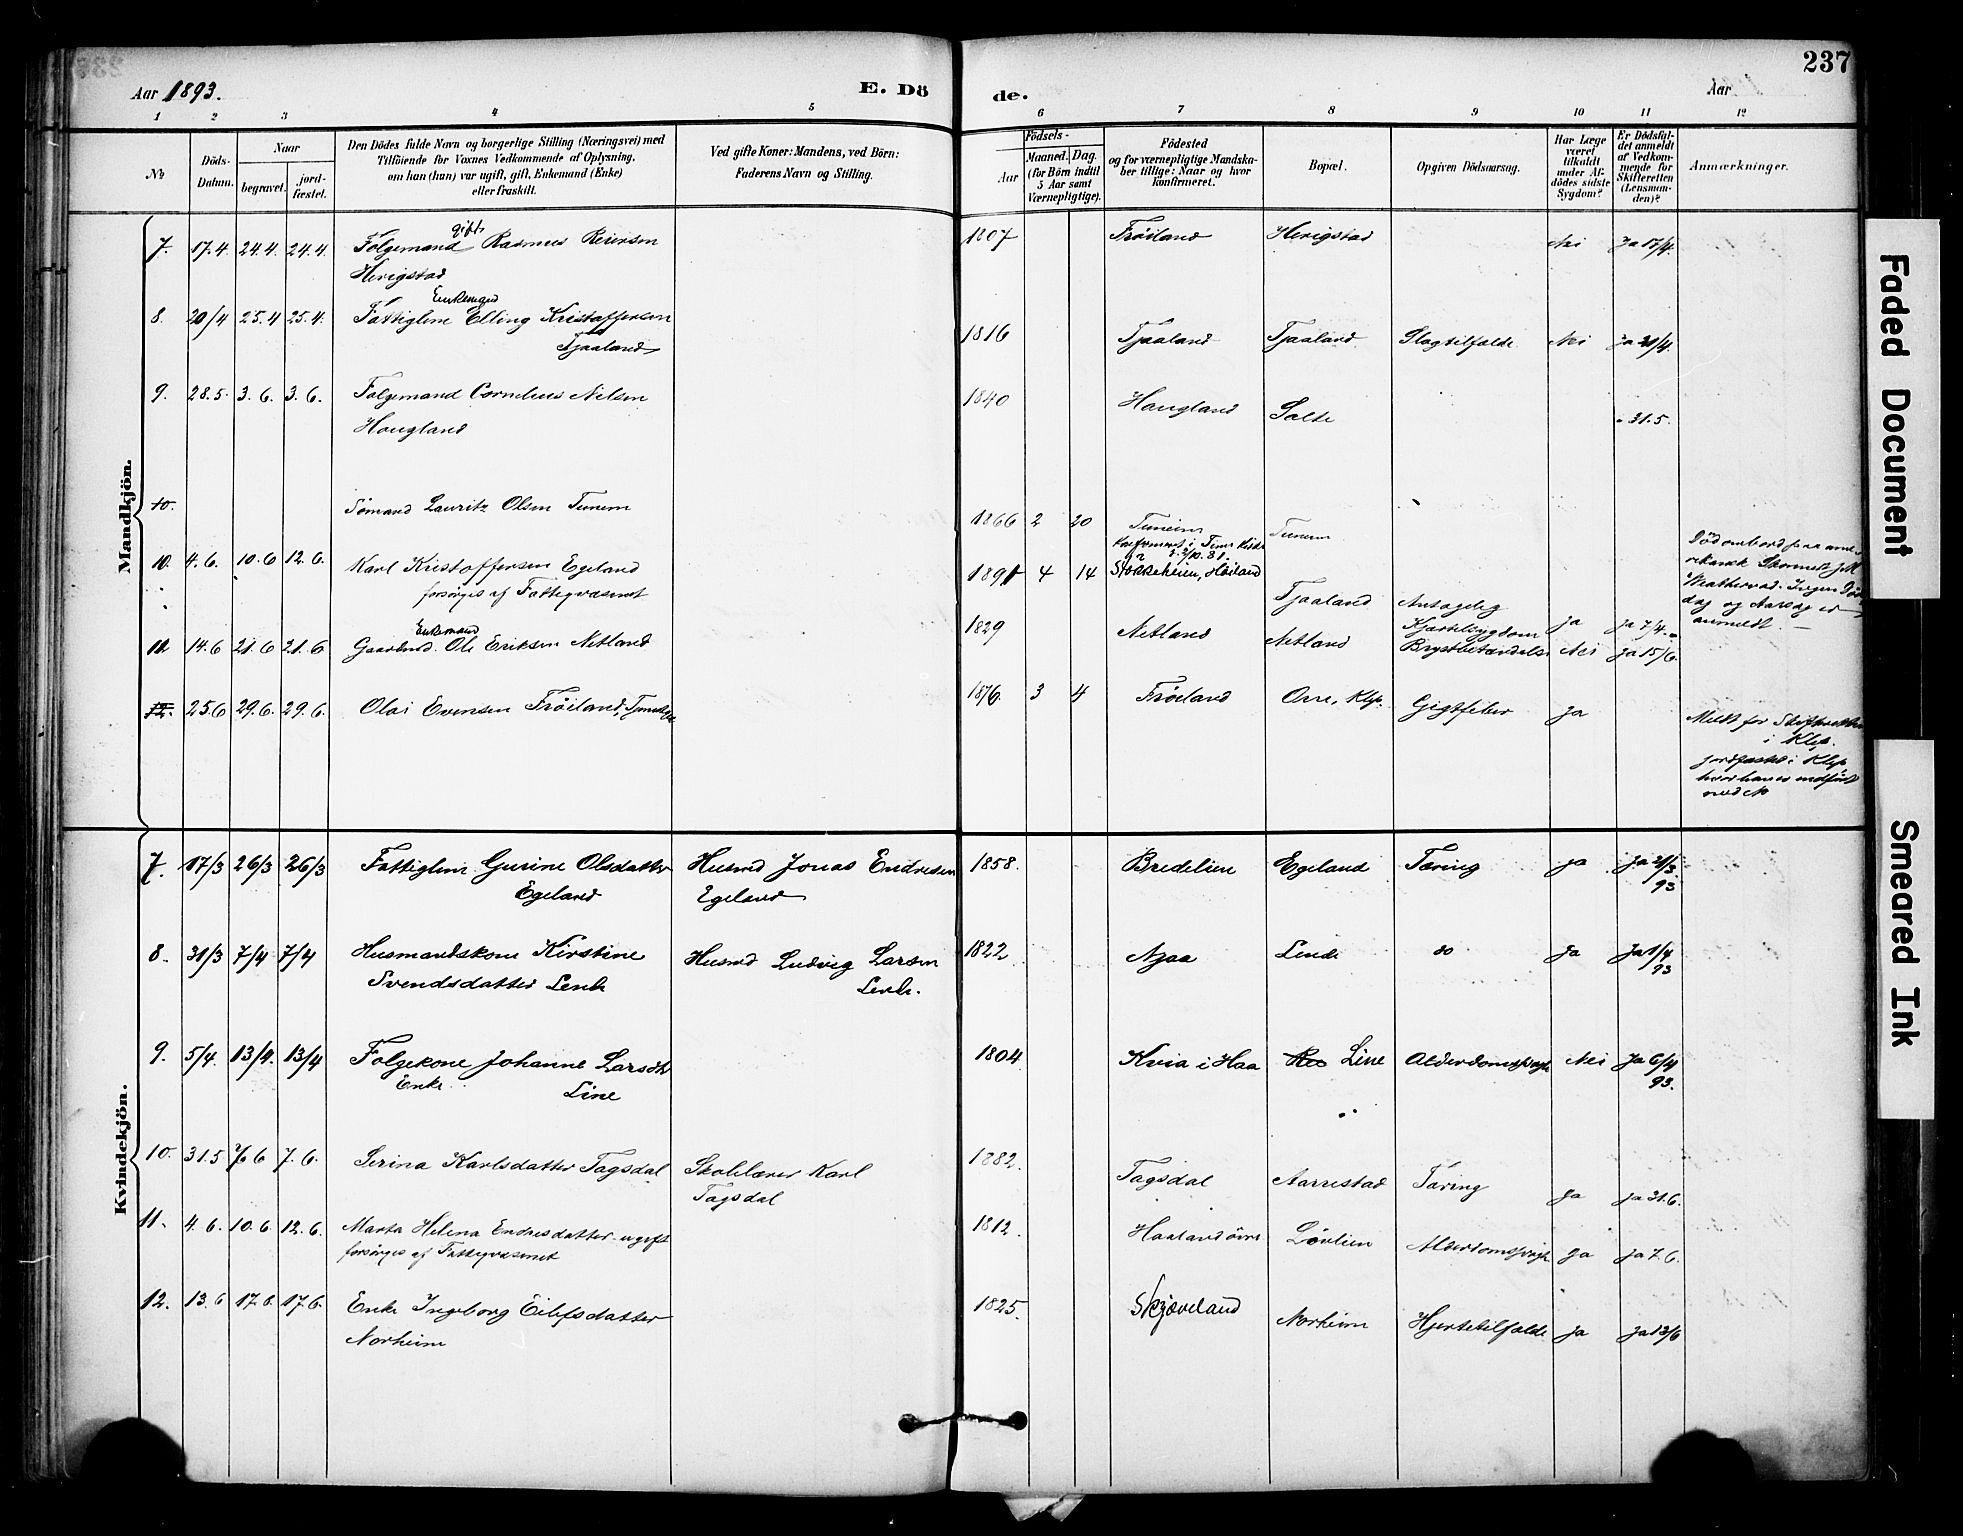 237
Aar 1893.
E. Dö
de.
Aar
1 2 3 4 5
6 7 8 9 10 11 12
No
Döds-Datum.
Naar
begravet.
jord-fæstet.
Den Dödes fulde Navn og borgerlige Stilling (Næringsvei) med
Tilföiende for Voxnes Vedkommende af Oplysning,
om han (hun) var ugift, gift, Enkemand (Enke)
eller fraskilt.
Ved gifte Koner: Mandens, ved Börn:
Faderens Navn og Stilling.
Födsels-
Aar
Maaned. Dag.
(for Börn indtil
5 Aar samt
Værnepligtige).
Födested
og for værnepligtige Mandska-
ber tillige: Naar og hvor
konfirmeret.
Bopæl.
Opgiven Dödsaarsag.
Har Læge
været
tilkaldt
under Af-
dödes sidste
Sygdom?
Er Dödsful-
det anmeldt
af Vedkom-
mende for
Skifteretten
(Lensman-
den)?
Anmærkninger.
Mandkjön.
7. 17.4 24.4. 24.4. gift Folgemand Rasmus Reiersen 1807 Fröiland Herigstad Nei Ja 17/4.
Herigstad
8. 20/4 25.4 25.4. Enkemand Fattiglem Elling Kristoffersen
Tjaaland 1816 Tjaaland Tjaaland Slagtilfælde Nei Ja 21/4.
9. 28.5. 3.6. 3.6. Folgemand Cornelius Nilsen 1840 Haugland Salte " 31.5.
Haugland
10. Sömand Lauritz Olsen Tunem 1866 2 20 Tuneim Tunem
Konfirmeret i Time Kirke
2/10. 81.
10. 4.6. 10.6 12.6. Karl Kristoffersen Egeland 1891 4 14 Stokkeheien, Höiland Tjaaland Antagelig Hjertesygdom ja ja 7/4.
forsörges af Fattigvæsenet
Död ombord paa ame-
rikansk Skonnert J. M.
Weatherwad. Ingen Döds
dag og Aarsag er
anmeldt.
11 14.6 21.6 21.6 Enkemand Gaardmd. Ole Eriksen Netland 1829 Netland Netland Brystbetændelse Nei Ja 15/6.
12. 25.6 29.6. 29.6. Olai Evensen Fröiland, Tjenestegut 1876. 3 4 Fröiland Orre, Klep. Gigtfeber Ja
Meldt for Skifteretten
i Klep.
jordfæstet i Klep
hvor han er indfört
med No
Kvindekjön.
7. 17/3 26/3 26/3 Fattiglem Gurine Olsdatter Husmd Jonas Endresen 1858. Bredelien Egeland Tæring ja Ja 21/3 93
Egeland Egeland
8. 31/3 7/4 7/4 Husmandskone Kirstine Husmd Ludvig Larsen 1822 Njaa Linde do Ja Ja 1/4 93
Svendsdatter
9. 5/4. 13/4. 13/4 Folgekone Johanne Larsdtr 1804 Kvia i Haa Line Alderdomssvagh. Nei Ja 6/4 93.
Enke. Line
10. 31.5 7/6 7.6. Serina Karlsdatter Tagsdal Skolelærer Karl 1882. Tagsdal Aarrestad Tæring Ja Ja 31.6.
Tagsdal
11. 4.6. 10.6 12.6. Marta Helena Endresdatter ugift 1812. Haaland övre Lövlien Alderdomssvagh. Ja Ja 7.6.
forsörges af Fattigvæsenet
12. 13.6 17.6. 17.6. Enke Ingeborg Eilefsdatter 1825. Skjæveland Norheim Hjertetilfælde Ja Ja 13/6
Norheim
Faded Document
Smeared Ink